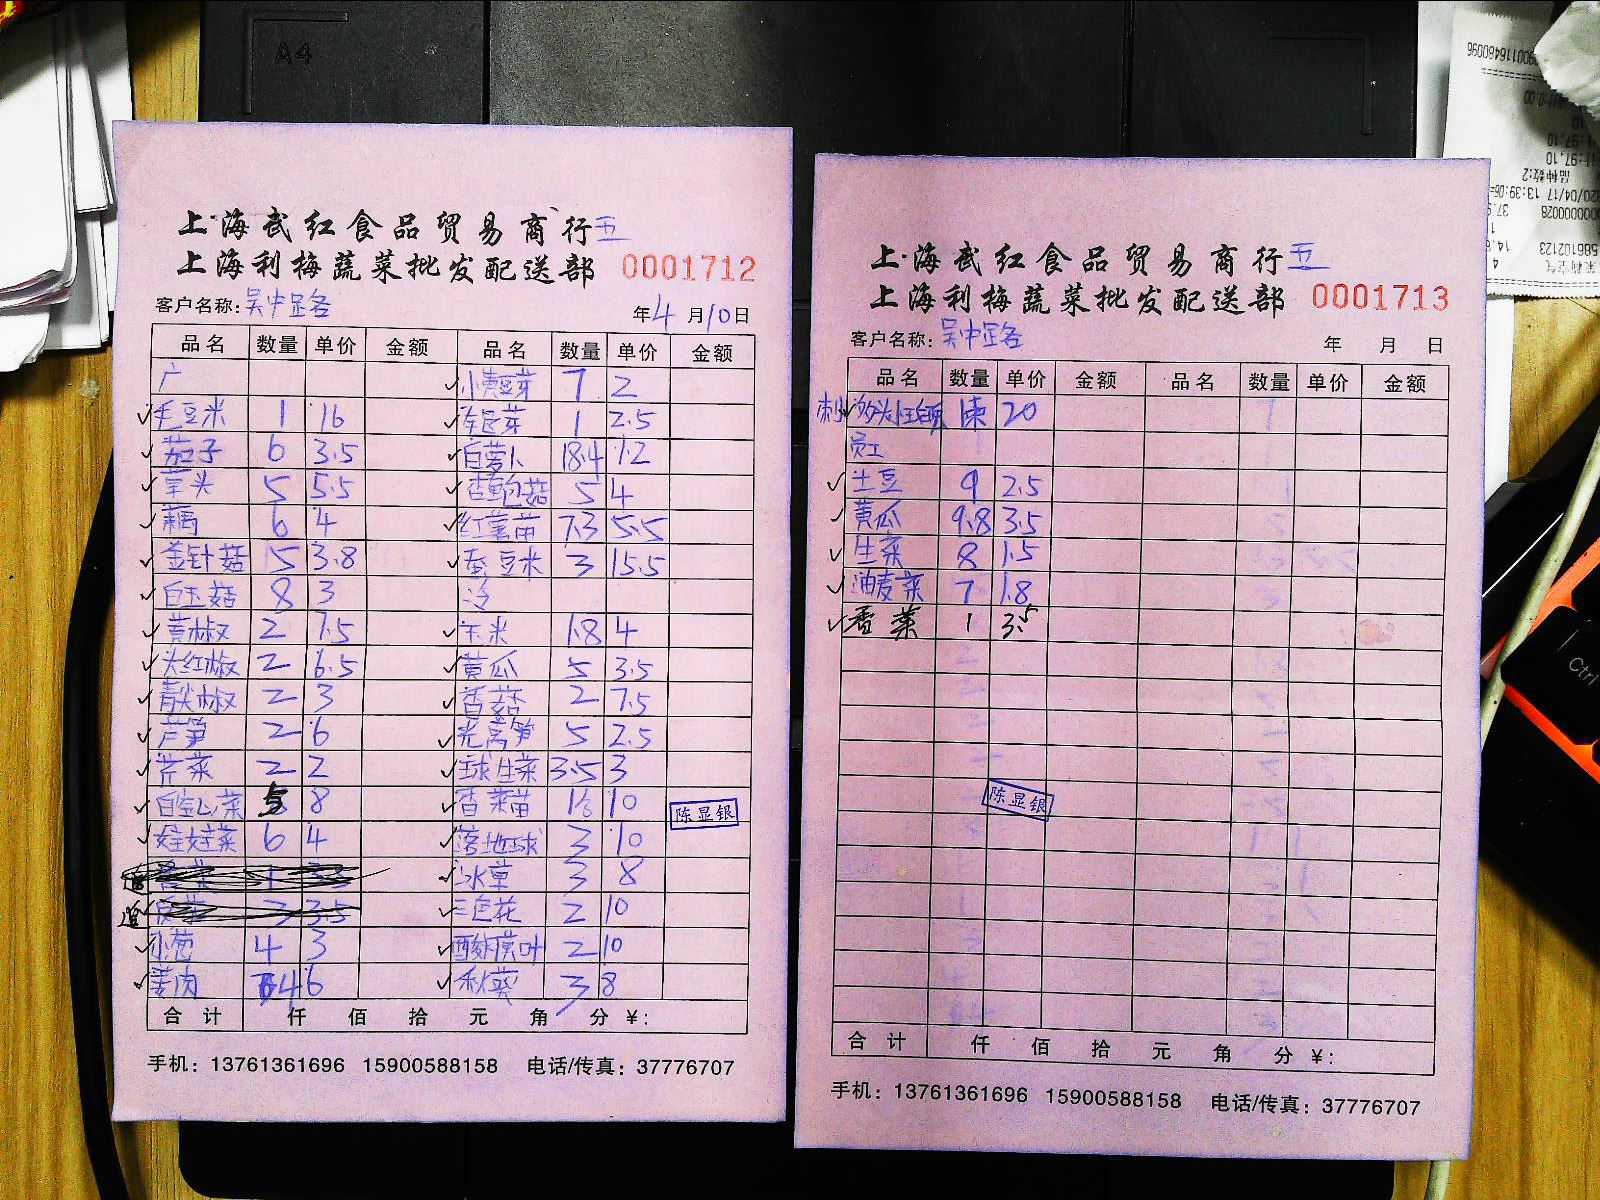 A4
上海武红食品贸易商行 五
上海利梅蔬菜批发配送部 0001712
客户名称: 吴中路各
年 4 月 10 日
品名 数量 单价 金额 品名 数量 单价 金额
广 小黄豆芽 7 2
毛豆米 1 16 1 2.5
茄子 6 3.5 白萝卜 18.4 1.2
草头 5 5.5 杏鲍菇 5 4
藕 6 4 红薯苗 7.3 5.5
金针菇 15 3.8 蚕豆米 3 15.5
白玉菇 8 3 冷
黄椒 2 7.5 玉米 1.8 4
大红椒 2 6.5 黄瓜 5 3.5
青尖椒 2 3 香菇 2 7.5
芦笋 2 6 光莴笋 5 2.5
芹菜 2 2 球生菜 3.5 3
8 香菜苗 10
娃娃菜 6 4 落地球 3 10
冰草 3 8
3 3.5 三色花 2 10
小葱 4 3 酸模叶 2 10
姜肉 6 秋葵 3 8
陈显银
合计 仟 佰 拾 元 角 分 ¥:
手机: 13761361696 15900588158 电话/传真: 37776707
上海武红食品贸易商行 五
上海利梅蔬菜批发配送部 0001713
客户名称: 吴中路各
年 月 日
品名 数量 单价 金额 品名 数量 单价 金额
20
员工
土豆 9 2.5
黄瓜 9.8 3.5
生菜 8 1.5
油麦菜 7 1.8
香菜 1 3.5
陈显银
合计 仟 佰 拾 元 角 分 ¥:
手机: 13761361696 15900588158 电话/传真: 37776707
Ctrl